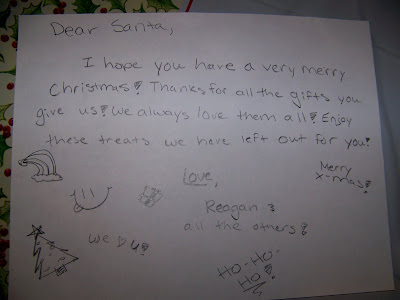 Dear Santa,
I hope you have a very merry
Christmas! Thanks for all the gifts you
give us! We always love them all! Enjoy
these treats we have left out for you!
Love,
Merry
X-mas!
Reagan &
all the others!
We ♡ U!
HO-HO-
HO!